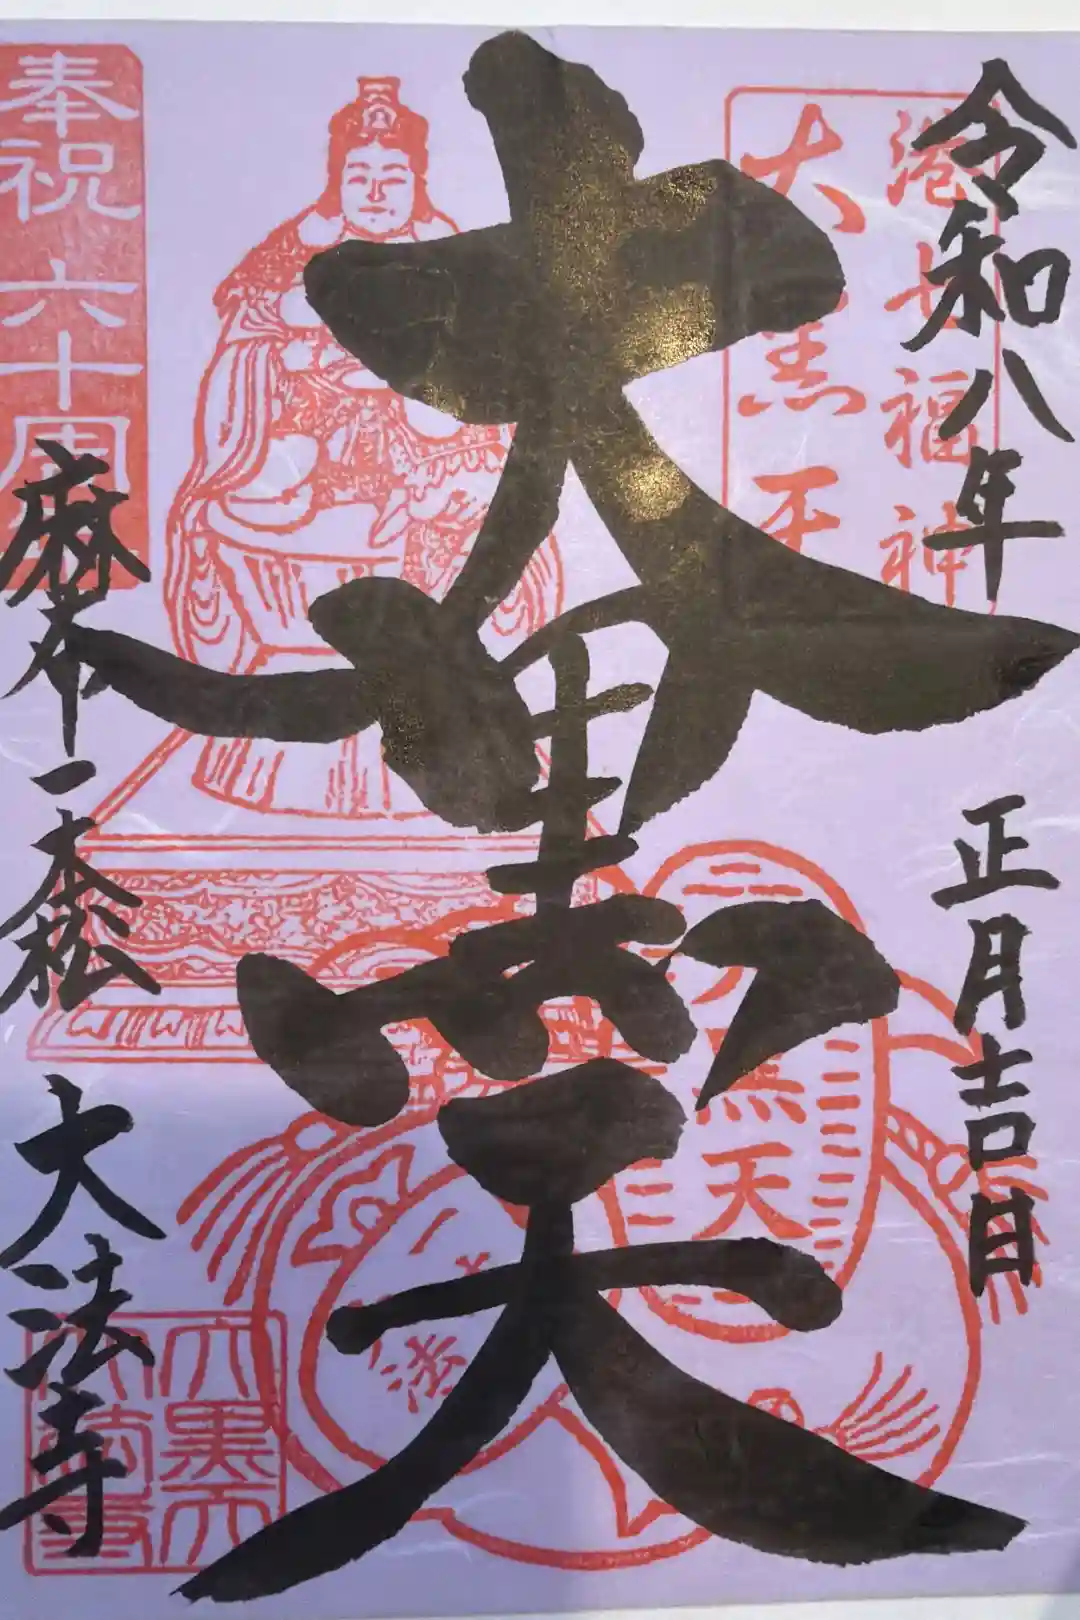 令和八年 正月吉日
港七福神
大黒天
大黒天
奉祝六十周年
麻布一本松 大法寺
大黒天
法